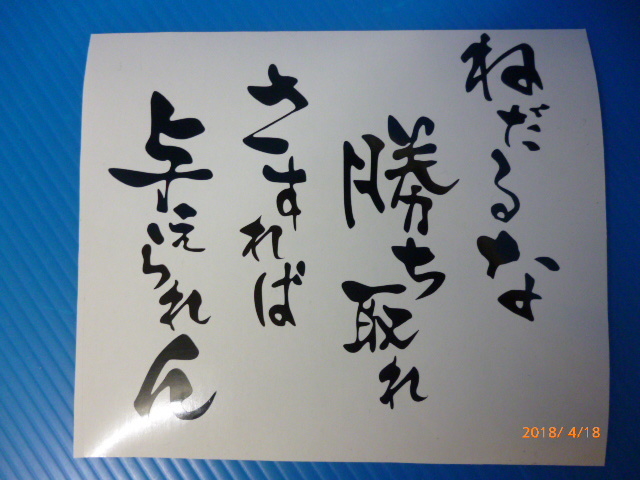 ねだるな
勝ち取れ
さすれば
与えられん
2018/ 4/18